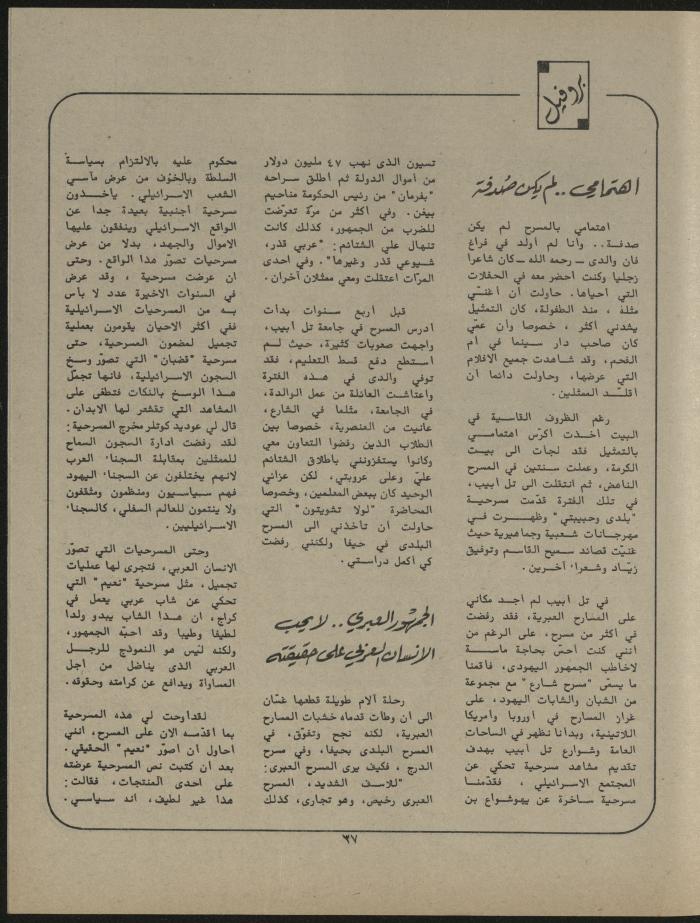 بروفيل
اهتمامي .. لم يكن صُدفة
اهتمامي بالمسرح لم يكن
صدفـة.. وأنا لم أولد في فراغ
فان والدى ــ رحمه الله ــ كان شاعرا
زجليا وكنت أحضر معه في الحفلات
التي أحياها. حاولت أن أغنّـي
مثله ، منذ الطفولة، كان التمثيل
يشدني أكثر ، خصوصا وأن عمّي
كان صاحب دار سينما في أم
الفحم، وقد شاهدت جميع الافلام
التي عرضها، وحاولت دائما أن
أقلـد الممثلين.
رغم الظروف القاسية في
البيت أخـذت أكرّس اهتمامـي
بالتمثيل فقد لجأت الى بيـت
الكرمة، وعملت سنتين في المسرح
الناهض، ثم انتقلت الى تل أبيب،
في تلك الفترة قدّمت مسرحيـة
"بلدى وحبيبتي" وظهـرت فـي
مهرجانات شعبية وجماهيرية حيث
غنيّت قصائد سميح القاسم وتوفيق
زيّـاد وشعرا' آخـرين .
في تل أبيب لم أجـد مكاني
على المسارح العبرية، فقد رفضت
في أكثر من مسرح، على الرغم من
أنني كنت أحسّ بحاجة ماسـة
لاخاطب الجمهور اليهودى، فأقمنا
ما يسمّى "مسرح شارع" مع مجموعة
من الشبان والشابات اليهود، على
غرار المسارح في أوروبا وأمريكا
اللاتينية، وبدأنا نظهر في الساحات
العامة وشوارع تل أبيب بهدف
تقديم مشاهد مسرحية تحكي عن
المجتمع الاسرائيلي ، فقدّمنـا
مسرحية ساخرة عن يهوشـواع بن
تسيون الذى نهب ٤٧ مليون دولار
من أموال الدولة ثم أطلق سـراحه
"بفرمان" من رئيس الحكومة مناحيم
بيغن. وفي أكثر من مرّة تعرّضت
للضرب من الجمهور، كذلك كانت
تنهال علي الشتائم: "عربي قذر،
شيوعي قذر وغيرها". وفي احدى
المرّات اعتقلت ومعي ممثلان آخران.
قبل أربع سنوات بدأت
أدرس المسرح في جامعة تل أبيب،
واجهت صعوبات كثيرة، حيث لـم
أستطع دفع قسط التعليم، فقد
توفي والدى في هـذه الفترة
واعتاشت العائلة من عمل الوالدة،
في الجامعة، مثلما في الشارع،
عانيت من العنصرية، خصوصا بين
الطلاب الذين رفضوا التعاون معي
وكانوا يستفزونني باطلاق الشتائم
عليّ وعلى عروبتي، لكن عزائي
الوحيد كان ببعض المعلمين، وخصوصا
المحاضرة "لولا تشويتون" التي
حاولت أن تأخذني الى المسرح
البلدى في حيفا ولكنني رفضت
كي أكمل دراستي .
الجمهور العبري.. لا يحب
الانسان العربي على حقيقته
رحلة آلام طويلة قطعها غسّان
الى أن وطأت قدماه خشبات المسارح
العبرية، لكنه نجح وتفوّق، في
المسرح البلدى بحيفا، وفي مسرح
الدرج ، فكيف يرى المسرح العبرى:
"للاسف الشديد، المسرح
العبرى رخيص، وهو تجارى، كذلك
محكوم عليه بالالتزام بسياسـة
السلطة وبالخوف من عرض مآسي
الشعب الاسرائيلي. يأخـذون
مسرحية أجنبية بعيدة جدا عن
الواقع الاسرائيلي وينفقون عليها
الاموال والجهد، بدلا من عرض
مسرحيات تصوّر هذا الواقع. وحتى
ان عرضت مسرحية ، وقد عرض
في السنوات الاخيرة عدد لا بأس
به من المسرحيات الاسرائيلية
ففي أكثر الاحيان يقومون بعملية
تجميل لمضمون المسرحية، حتى
مسرحية "قضبان" التي تصوّر وسـخ
السجون الاسرائيلية، فانها تجمّل
هـذا الوسخ بالنكات فتطغى على
المشاهد التي تقشعر لها الابدان.
قال لي عوديد كوتلر مخرج المسرحية:
لقد رفضت ادارة السجون السماح
للممثلين بمقابلة السجنا' العرب
لانهم يختلفون عن السجنا' اليهود
فهم سياسـيون ومنظمون ومثقفون
ولا ينتمون للعالم السفلي، كالسجنا'
الاسرائيليين.
وحتى المسرحيات التي تصوّر
الانسان العربي، فتجرى لها عمليات
تجميل، مثل مسرحية "نعيم" التي
تحكي عن شاب عربي يعمل في
كراج، ان هـذا الشاب يبدو ولدا
لطيفا وطيبا وقد أحبّه الجمهور،
ولكنه ليس هو النموذج للرجـل
العربي الذى يناضل من أجل
المساواة ويدافع عن كرامته وحقوقه.
لقد أوحت لي هذه المسرحية
بما أقدّمـه الان على المسرح، انني
أحاول أن أصوّر "نعيم" الحقيقي.
بعد أن كتبت نص المسرحية عرضته
على احدى المنتجات، فقالت:
هذا غير لطيف، انه سـياسـي.
٣٧